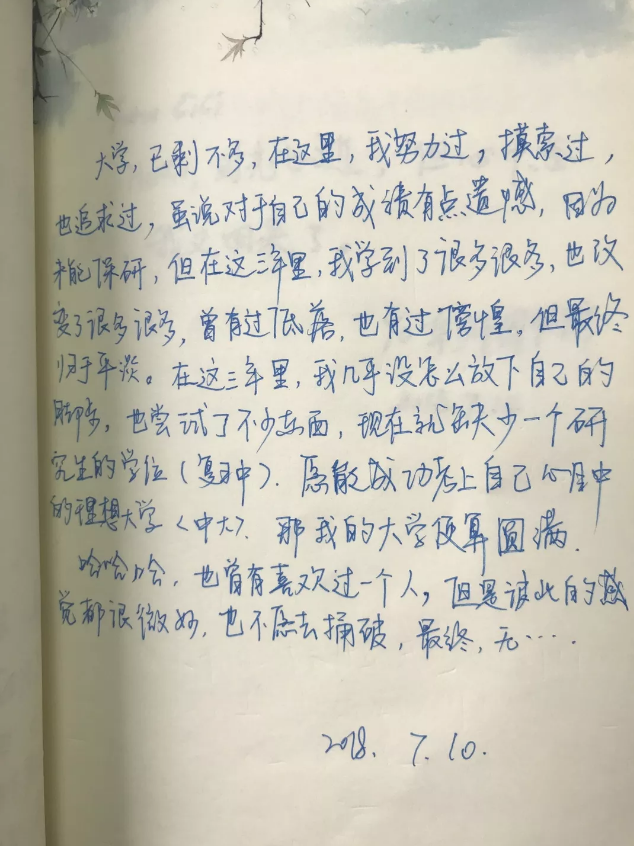 大学,已剩不多,在这里,我努力过,摸索过,
也追求过,虽说对于自己的成绩有点遗憾,因为
未能保研,但在这三年里,我学到了很多很多,也改
变了很多很多,曾有过低落,也有过彷惶,但最终
归于平淡。在这三年里,我几乎没怎么放下自己的
脚步,也尝试了不少东西,现在就缺少一个研
究生的学位(复习中).愿能成功考上自己心目中
的理想大学<中大>.那我的大学便算圆满.
哈哈哈,也曾有喜欢过一个人,但是彼此的感
觉都很微妙,也不愿去捅破,最终,无……
2018.7.10.